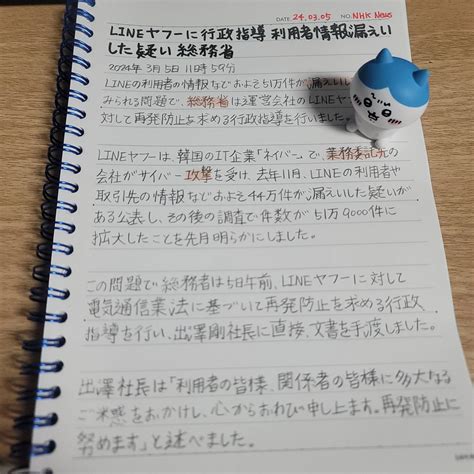 DATE 24.03.05 NO. NHK News
LINEヤフーに行政指導 利用者情報漏えい
した疑い 総務省
2024年3月5日 11時59分
LINEの利用者の情報などおよそ51万件が漏えいしたと
みられる問題で、総務省は運営会社のLINEヤフーに
対して再発防止を求める行政指導を行いました。
LINEヤフーは、韓国のIT企業「ネイバー」で、業務委託先の
会社がサイバー攻撃を受け、去年11月、LINEの利用者や
取引先の情報などおよそ44万件が漏えいした疑いが
ある公表し、その後の調査で件数が51万9000件に
拡大したことを先月明らかにしました。
この問題で総務省は5日午前、LINEヤフーに対して
電気通信業法に基づいて再発防止を求める行政
指導を行い、出澤剛社長に直接、文書を手渡しました。
出澤社長は「利用者の皆様、関係者の皆様に多大なる
ご迷惑をおかけし、心からおわび申し上げます。再発防止に
努めます」と述べました。